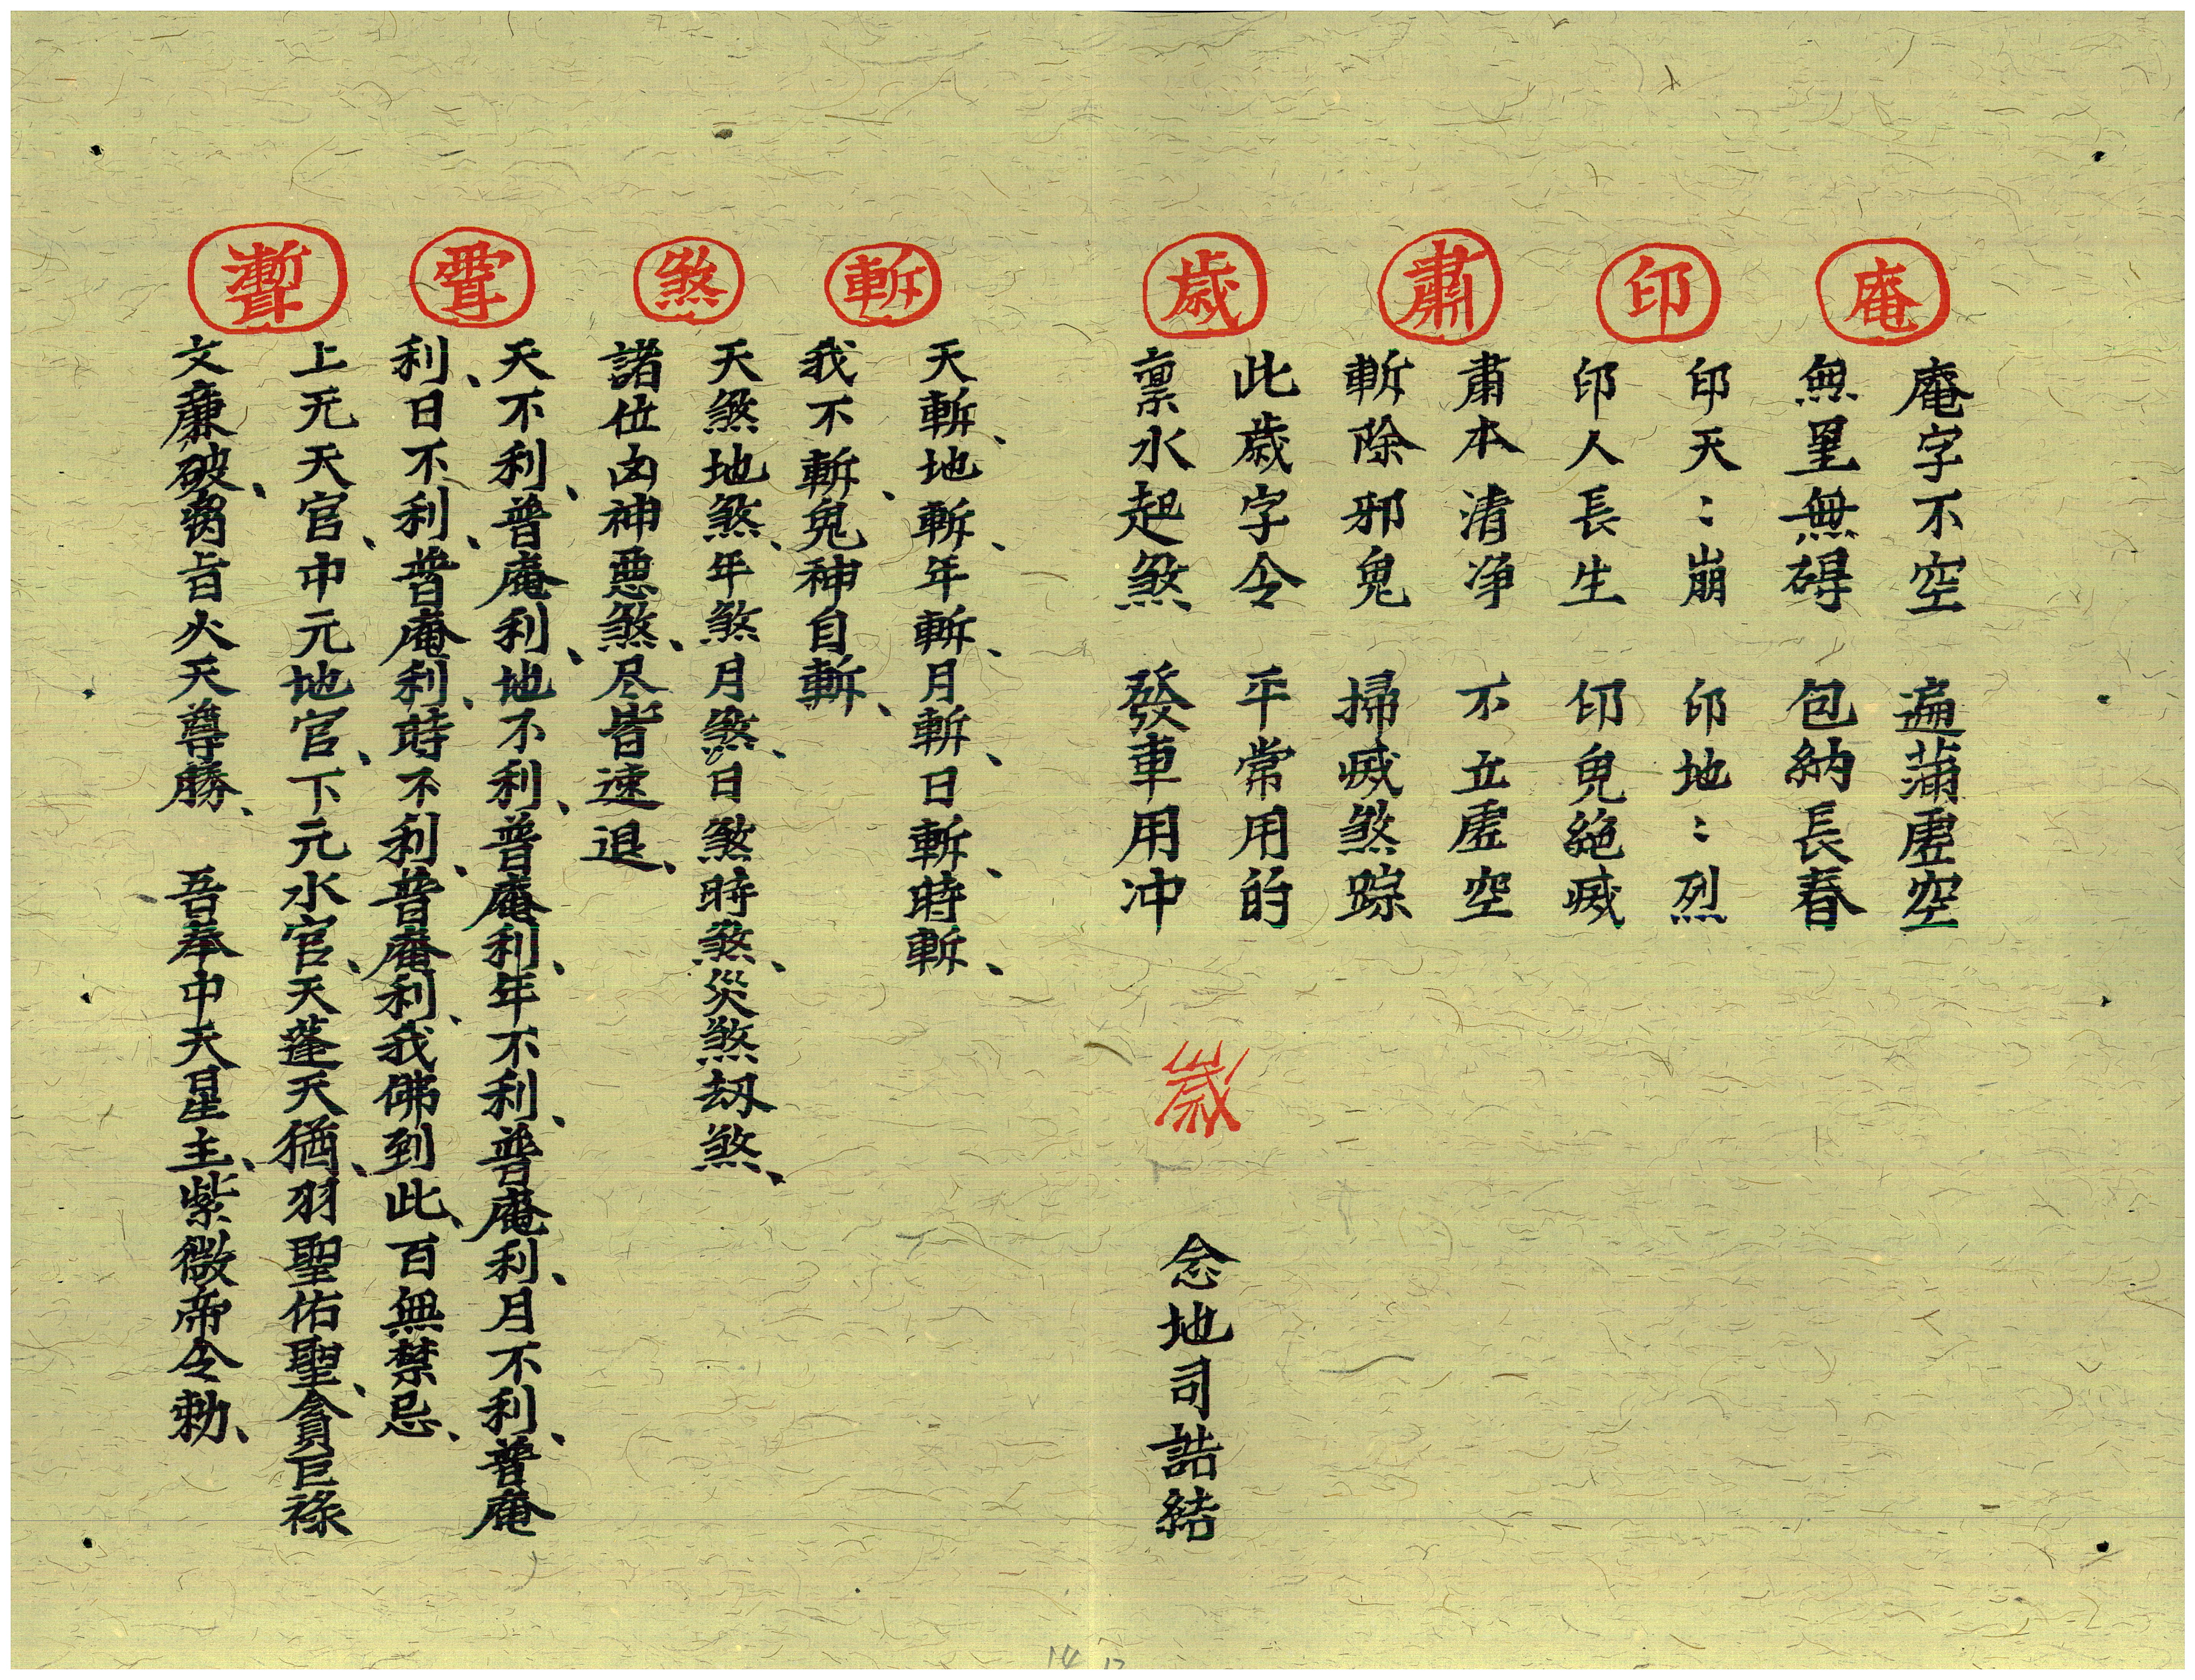 庵
庵字不空 遍蒲虛空
無里無碍 包納長春
印
印天：崩 印地：烈
印人長生 印鬼絶滅
肅
肅本清淨 不立虛空
斬除邪鬼 掃滅煞踪
歲
此歲字令 平常用的
禀水起煞 發車用冲
歲 念地司誥結
斬
天斬、地斬、年斬、月斬、日斬、時斬、
我不斬、鬼神自斬、
煞
天煞地煞、年煞月煞、日煞時煞、災煞刼煞、
諸位凶神惡煞、尽皆速退、
天不利、普庵利、地不利、普庵利、年不利、普庵利、月不利、普庵
利、日不利、普庵利、時不利、普庵利、我佛到此、百無禁忌、
上元天官、中元地官、下元水官、天蓬天猶、羽聖佑聖、貪巨祿
文廉破、 火天尊勝、 吾奉中天星主、紫微帝令勅、